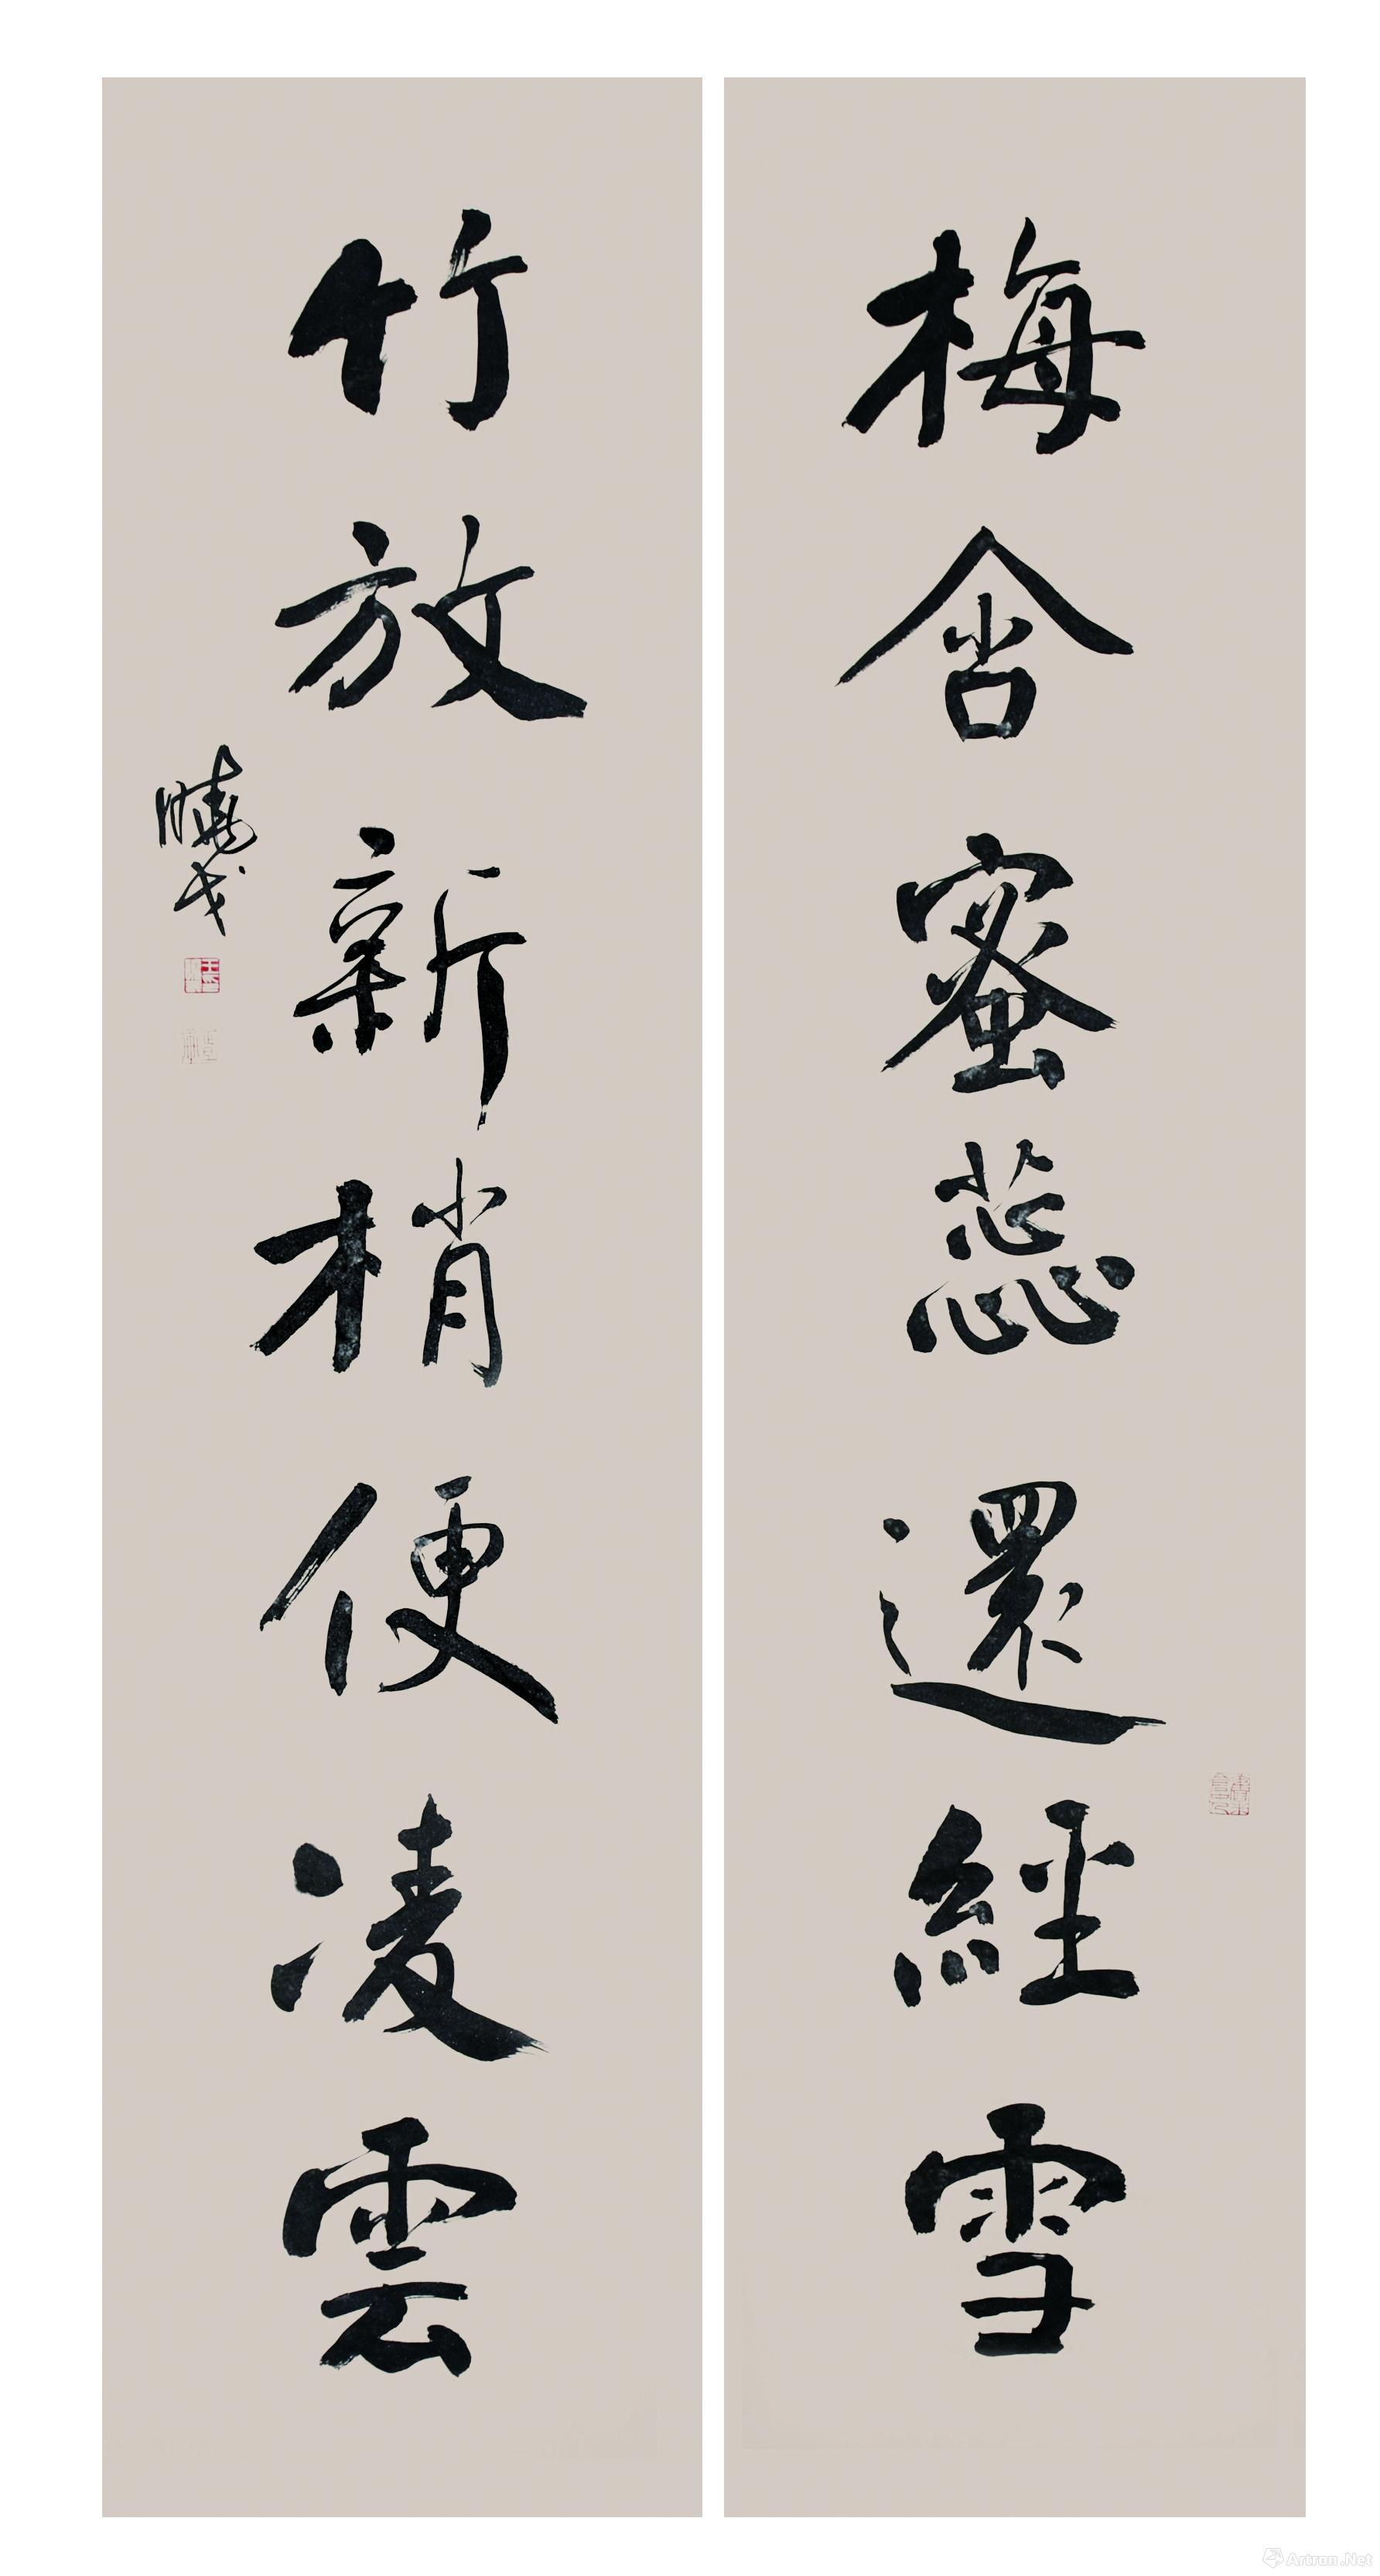 梅含蜜蕊還經雪
竹放新梢便凌雲
曉戈
Artron.Net